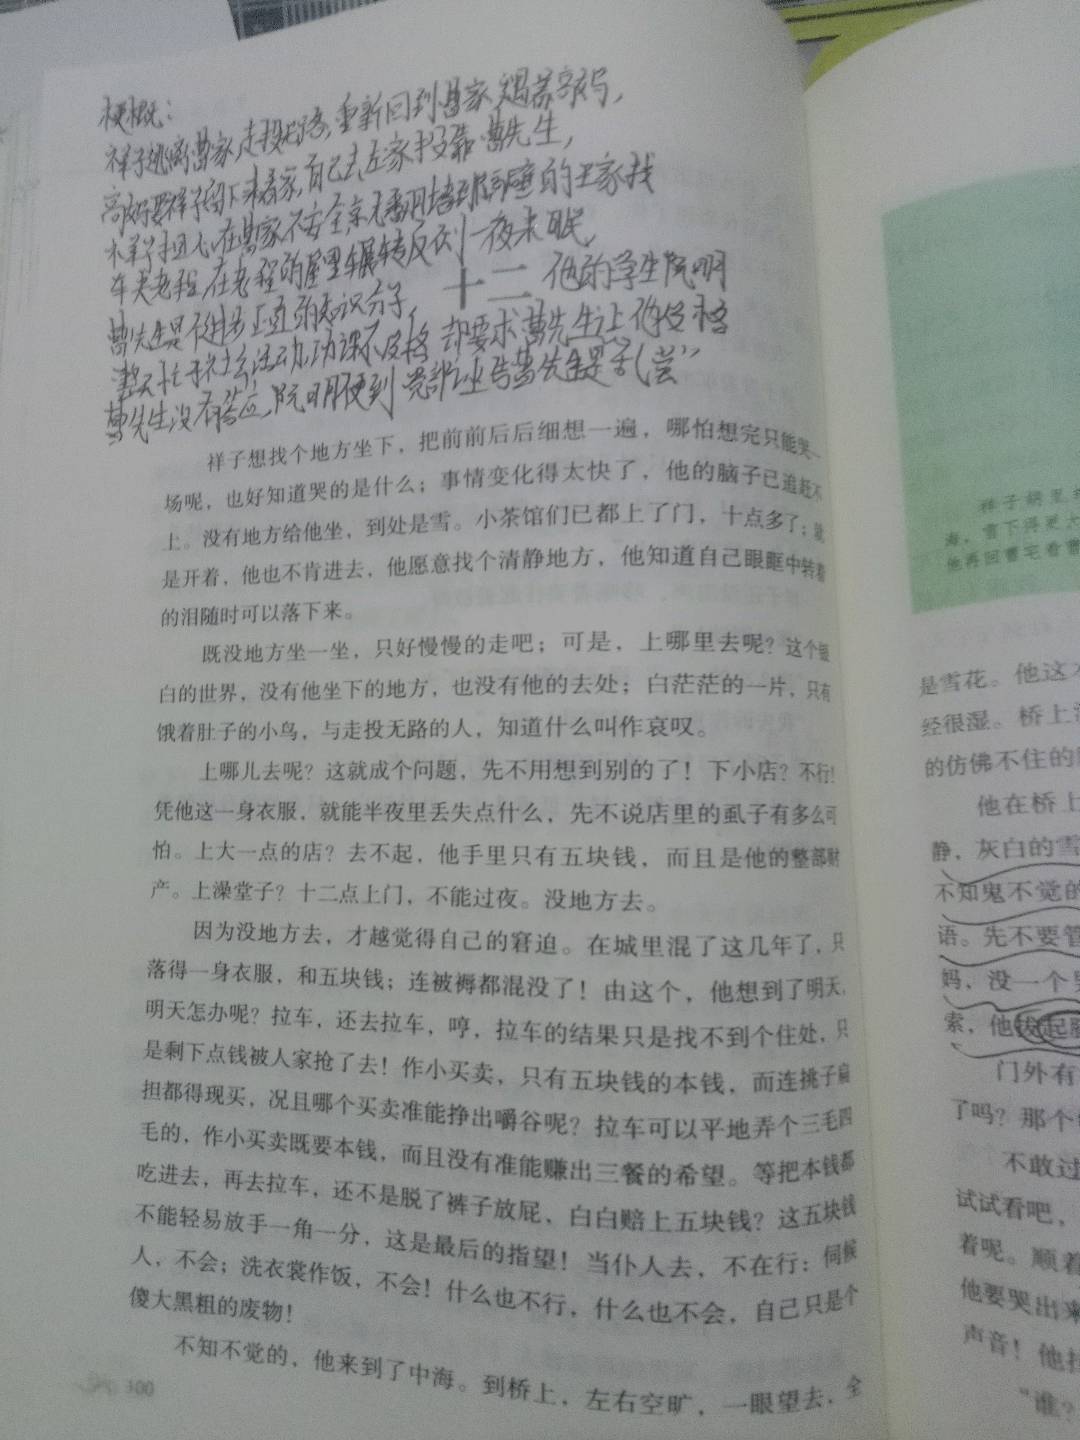 梗概：
祥子逃离曹家，走投无路，重新回到曹家遇着高妈，
高妈要祥子留下来看家，自己去左家投靠曹先生，
祥子担心在曹家不安全，就翻墙到隔壁的王家找
车夫老程，在老程的屋里辗转反侧一夜未眠，
十二
曹先生是个进步正直的知识分子，他的学生阮明
整天忙于社会活动，功课不及格却要求曹先生让他及格
曹先生没有答应，阮明便到党部诬告曹先生是“乱党”
祥子想找个地方坐下，把前前后后细想一遍，哪怕想完只能哭一
场呢，也好知道哭的是什么；事情变化得太快了，他的脑子已追赶不
上。没有地方给他坐，到处是雪。小茶馆们已都上了门，十点多了；就
是开着，他也不肯进去，他愿意找个清静地方，他知道自己眼眶中转着
的泪随时可以落下来。
既没地方坐一坐，只好慢慢的走吧；可是，上哪里去呢？这个银
白的世界，没有他坐下的地方，也没有他的去处；白茫茫的一片，只有
饿着肚子的小鸟，与走投无路的人，知道什么叫作哀叹。
上哪儿去呢？这就成个问题，先不用想到别的了！下小店？不行！
凭他这一身衣服，就能半夜里丢失点什么，先不说店里的虱子有多么可
怕。上大一点的店？去不起，他手里只有五块钱，而且是他的整部财
产。上澡堂子？十二点上门，不能过夜。没地方去。
因为没地方去，才越觉得自己的窘迫。在城里混了这几年了，只
落得一身衣服，和五块钱；连被褥都混没了！由这个，他想到了明天，
明天怎办呢？拉车，还去拉车，哼，拉车的结果只是找不到个住处，只
是剩下点钱被人家抢了去！作小买卖，只有五块钱的本钱，而连挑子扁
担都得现买，况且哪个买卖准能挣出嚼谷呢？拉车可以平地弄个三毛四
毛的，作小买卖既要本钱，而且没有准能赚出三餐的希望。等把本钱都
吃进去，再去拉车，还不是脱了裤子放屁，白白赔上五块钱？这五块钱
不能轻易放手一角一分，这是最后的指望！当仆人去，不在行：伺候
人，不会；洗衣裳作饭，不会！什么也不行，什么也不会，自己只是个
傻大黑粗的废物！
不知不觉的，他来到了中海。到桥上，左右空旷，一眼望去，全
100
祥子
海，雪下得更大
他再回曹宅看曹
是雪花。他这
经很湿。桥上
的仿佛不住的
他在桥上
静，灰白的雪
不知鬼不觉的
语。先不要管
妈，没一个
索，他拔起
门外有
了吗？那个
不敢过
试试看吧，
着呢。顺着
他要哭出来
声音！他
“谁？